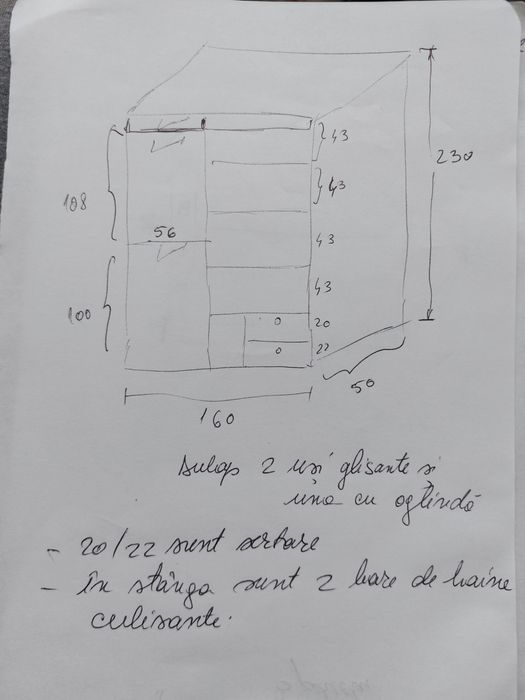 43
230
43
108
56
43
43
100
20
22
50
160
dulap 2 uși glisante și
una cu oglindă
- 20/22 sunt sertare
- în stânga sunt 2 bare de haine
culisante.